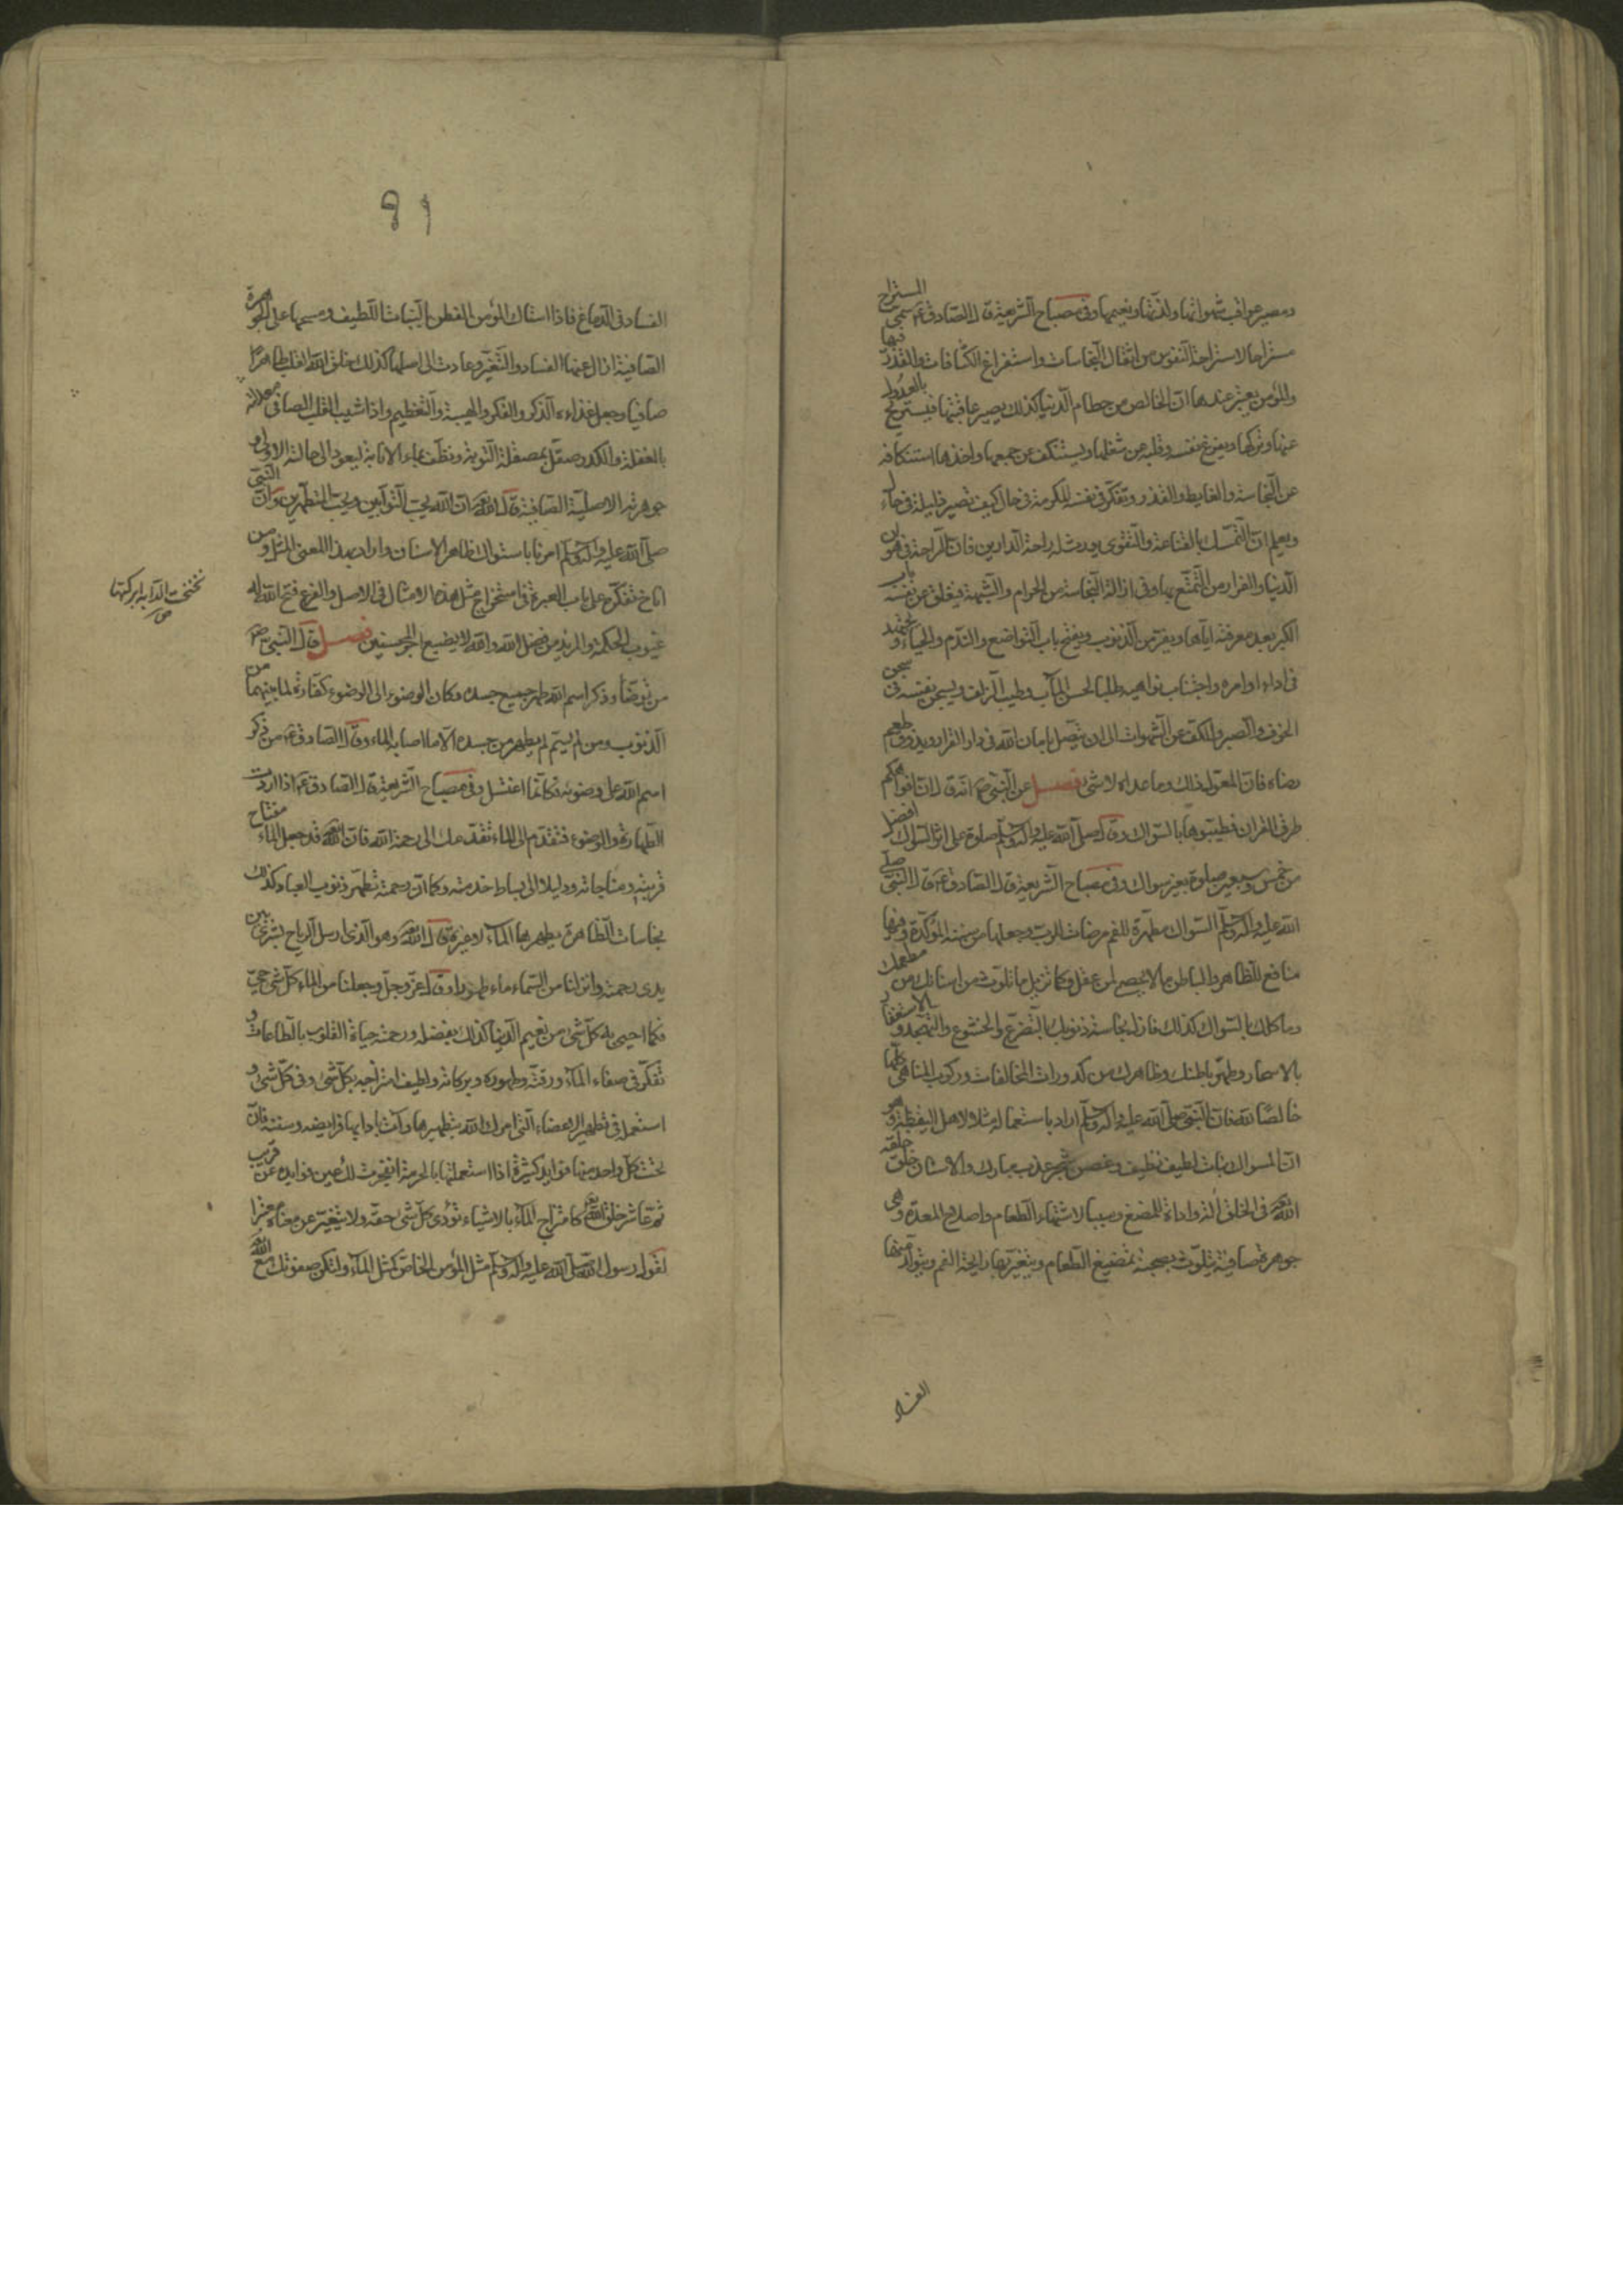 ومصير عواقب شهواتها ولذتها ونعيمها وفى مصباح الشريعة قال الصادق ع سمى المستراح
مستراحا لاستراحة النفوس من اثقال النجاسات واستفراغ الكثافات والقذر فيها
والمؤمن يعتبر عندها ان الخالص من حطام الدنيا كذلك يصير عاقبتها فيستريح بالعدول
عنها وتركها ويفرغ نفسه وقلبه عن شغلها ويستنكف عن جمعها واخذها استنكافه
عن النجاسة والغايط والقذر ويتفكر فى نفسه المكرمة فى حال كيف تصير ذليلة فى حال
ويعلم ان التمسك بالقناعة والتقوى يورث له راحة الدارين فان الراحة فى هوان
الدنيا والفراغ من التمتع بها وفى ازالة النجاسة من الحرام والشبهة فيغلق عن نفسه باب
الكبر بعد معرفته اياها ويفر من الذنوب ويفتح باب التواضع والندم والحياء ويجتهد
فى اداء اوامره واجتناب نواهيه طلبا لحسن المآب وطيب الزلف ويسجن نفسه فى سجن
الخوف والصبر والكف عن الشهوات الى ان يتصل بامان الله فى دار القرار ويذوق طعم
رضاه فان المعول ذلك وما عداه لا شىء فصل عن النبى ص انه قال ان افواهكم
طرق القران فطيبوها بالسواك وقال صلى الله عليه وآله وسلم صلوة على اثر السواك افضل
من خمس وسبعين صلوة بغير سواك وفى مصباح الشريعة قال الصادق ع قال النبى صلى
الله عليه وآله وسلم السواك مطهرة للفم مرضات للرب وجعلها من سننه المؤكدة وفيها
منافع للظاهر والباطن ما لا يحصى لمن عقل فكما تزيل ما تلوث من اسنانك من مطعمك
وماكلك بالسواك كذلك فازل نجاسة ذنوبك بالتضرع والخشوع والتهجد والاستغفار
بالاسحار وطهر باطنك وظاهرك من كدورات المخالفات وركوب المناهى كلها
خالصا لله فان النبى صلى الله عليه وآله وسلم اراد باستعماله مثلا لاهل اليقظة وهو
ان المسواك نبات لطيف نظيف وغصن شجر عذب مبارك والاسنان خلق خلقه
الله تعالى فى الخلق الة واداة للمضغ وسببا لاشتهاء الطعام واصلاح المعدة وهى
جوهرة صافية يتلوث بصحبة تمضيغ الطعام ويتغير بها رايحة الفم ويتولد منها
الفساد
٩١
الفساد فى الدماغ فاذا استاك المؤمن الفطن بالنبات اللطيف ومسحها على الجوهرة
الصافية ازال عنها الفساد والتغير وعادت الى اصلها كذلك خلق الله القلب طاهرا
صافيا وجعل غذاءه الذكر والفكر والهيبة والتعظيم واذا شيب القلب الصافى
بالغفلة والكدر صقل بمصقلة التوبة ونظف بماء الانابة ليعود الى حالته الاولى و
جوهرته الاصلية الصافية قال الله تعالى ان الله يحب التوابين ويحب المتطهرين وان النبى
صلى الله عليه وآله وسلم امرنا باستواك ظاهر الاسنان واراد بهذا المعنى المثل ومن
اناخ تفكره على باب العبرة فى استخراج مثل هذه الامثال فى الاصل والفرع فتح الله له
عيون الحكمة والمزيد من فضل الله والله لا يضيع اجر المحسنين فصل قال النبى ص
من توضأ وذكر اسم الله طهر جميع جسده وكان الوضوء الى الوضوء كفارة لما بينهما من
الذنوب ومن لم يسم لم يطهر من جسده الا ما اصابه الماء وقال الصادق ع من ذكر
اسم الله على وضوئه فكانما اغتسل وفى مصباح الشريعة قال الصادق ع اذا اردت
الطهارة والوضوء فتقدم الى الماء تقدمك الى رحمة الله فان الله قد جعل الماء مفتاح
قربته ومناجاته ودليلا الى بساط خدمته وكما ان رحمته تطهر ذنوب العباد كذلك
نجاسات الظاهر يطهرها الماء لا غيره قال الله تعالى وهو الذى ارسل الرياح بشرى بين
يدى رحمته وانزلنا من السماء ماء طهورا وقال عز وجل وجعلنا من الماء كل شىء حى
فكما احيى به كل شىء من نعيم الدنيا كذلك بفضله ورحمته حياة القلوب بالطاعات و
تفكر فى صفاء الماء ورقته وطهوره وبركاته ولطيف امتزاجه بكل شىء وفى كل شىء و
استعمله فى تطهير الاعضاء التى امرك الله بتطهيرها وآت بادابها فرايضه وسننه فان
تحت كل واحد منها فوايد كثيرة اذا استعملتها بالحرمة انفجرت لك عين فوايده عن قريب
ثم عاشر خلق الله كامتزاج الماء بالاشياء تؤدى كل شىء حقه ولا يتغير عن معناه معتبرا
لقول رسول الله صلى الله عليه وآله وسلم مثل المؤمن الخاص كمثل الماء ولتكن صفوتك مع الله